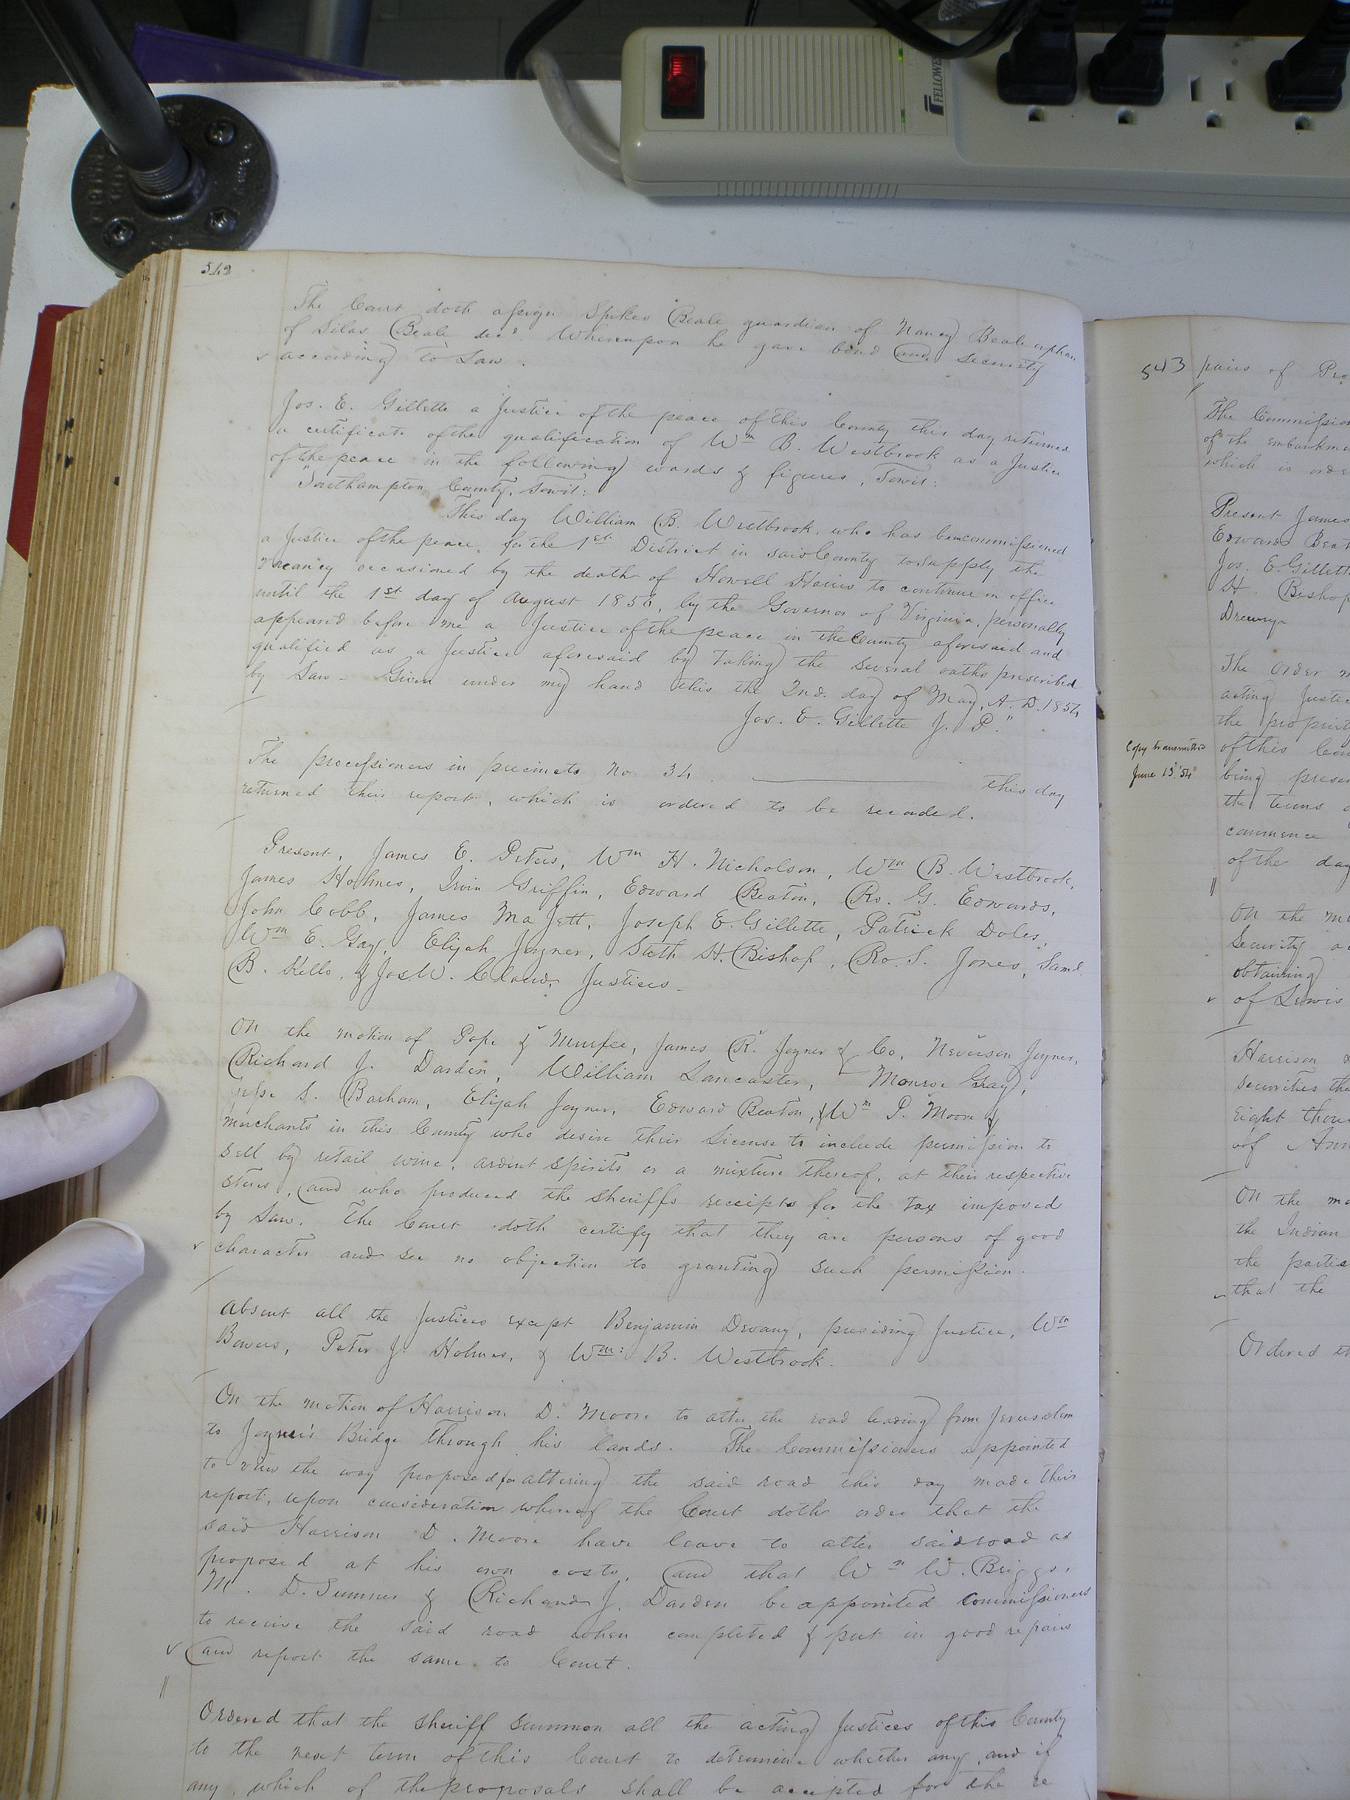 FELLOWES
542
The Court doth assign Spukes Beale guardian of Nancy Beale orphan
of Silas Beale decd. Whereupon he gave bond and security
according to Law.
Jos. E. Gillette a Justice of the peace of this County this day returned
a certificate of the qualification of Wm B. Westbrook as a Justice
of the peace in the following words & figures, Towit:
"Southampton County, Towit:
This day William B. Westbrook, who has been commissioned
a Justice of the peace for the 1st District in said County to supply the
vacancy occasioned by the death of Howell Harris to continue in office
until the 1st day of August 1856, by the Governor of Virginia, personally
appeared before me a Justice of the peace in the County aforesaid and
qualified as a Justice aforesaid by taking the several oaths prescribed
by Law. Given under my hand this the 2nd. day of May, A. D. 1854
Jos. E. Gillette J. P."
The processioners in precincts No. 34 this day
returned their report, which is ordered to be recorded.
Present, James E. Peters, Wm H. Nicholson, Wm B. Westbrook,
James Holmes, Irvin Griffin, Edward Beaton, Ro. G. Edwards,
John Cobb, James Majett, Joseph E. Gillette, Patrick Doles,
Wm E. Gay, Elijah Joyner, Seth H. Bishop, Ro. S. Jones, Saml.
B. Kello, & Jos W. Claud, Justices.
On the motion of Pope & Murfee, James R. Joyner & Co, Neverson Joyner,
Richard J. Darden, William Lancaster, Monroe Gray,
Jesse S. Barham, Elijah Joyner, Edward Beaton, & Wm P. Moore
merchants in this County who desire their License to include permission to
sell by retail wine, ardent spirits or a mixture thereof, at their respective
stores, and who produced the sheriffs receipts for the tax imposed
by Law. The Court doth certify that they are persons of good
character and see no objection to granting such permission.
Absent all the Justices except Benjamin Devany, presiding Justice, Wm
Bowers, Peter J. Holmes, & Wm: B. Westbrook.
On the motion of Harrison D. Moore to alter the road leading from Jerusalem
to Joyner's Bridge through his lands. The Commissioners appointed
to view the way proposed for altering the said road this day made their
report, upon consideration whereof the Court doth order that the
said Harrison D. Moore have leave to alter said road as
proposed at his own costs, and that Wm W. Briggs,
M. D. Sumner & Richard J. Darden be appointed commissioners
to receive the said road when completed & put in good repairs
and report the same to Court.
Ordered that the sheriff summon all the acting Justices of this County
to the next term of this Court to determine whether any, and if
any, which of the proposals shall be accepted for the re
543 pairs of
The Commission
of the embankme
which is orde
Present James
Edward Beat
Jos. E. Gillett
H. Bishop
Drewry
The order m
acting Justic
the propriet
Copy transmitted
June 13 '54
of this Cou
being prese
the terms o
commence
of the day
On the mo
Security a
obtaining
of Lewis
Harrison &
securities th
Eight thous
of Ann
On the mo
the Indian
the parties
that the
Ordered th